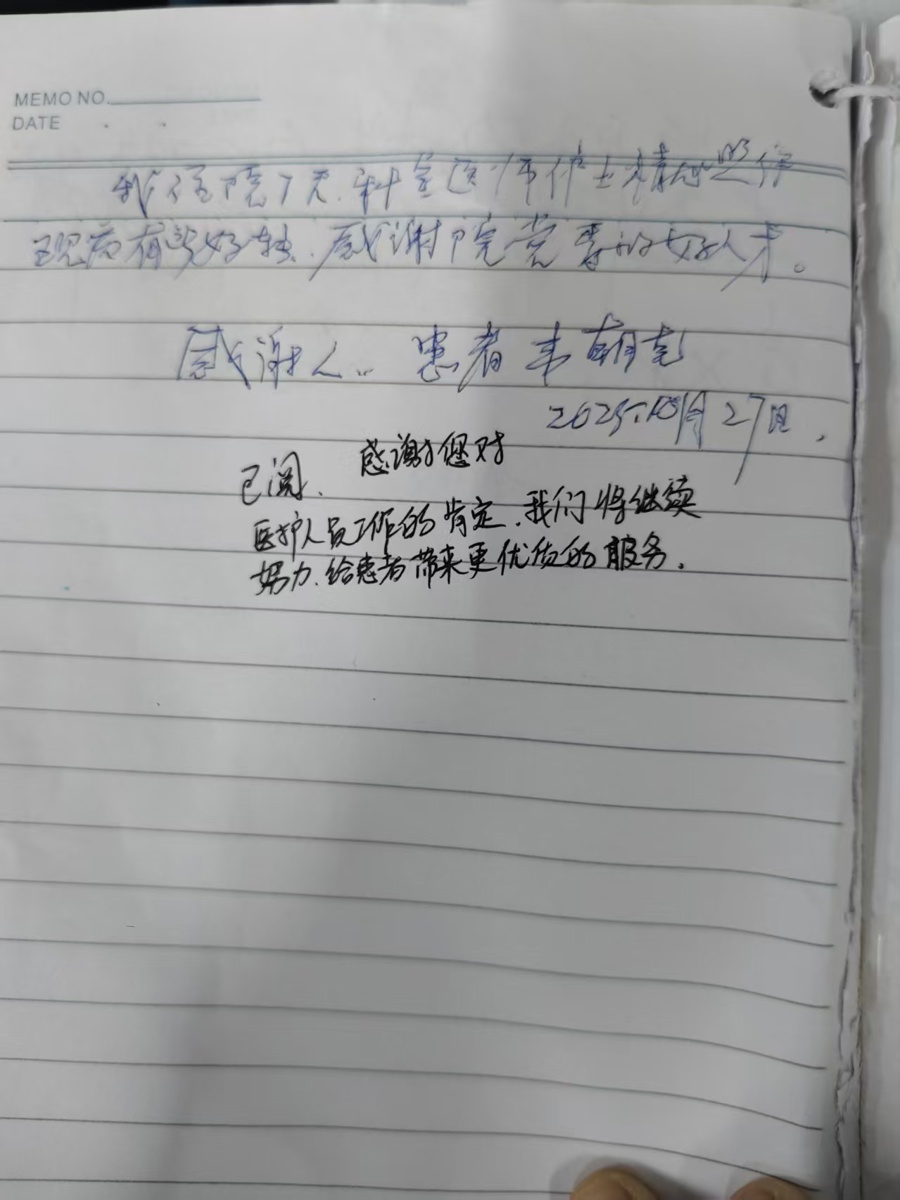 MEMO NO.
DATE
我住院7天.科室医师护士精心照顾
现病有所好转.感谢院党委的好人才。
感谢人:患者韦朝
2025.10月27日.
已阅. 感谢您对
医护人员工作的肯定.我们将继续
努力.给患者带来更优质的服务.